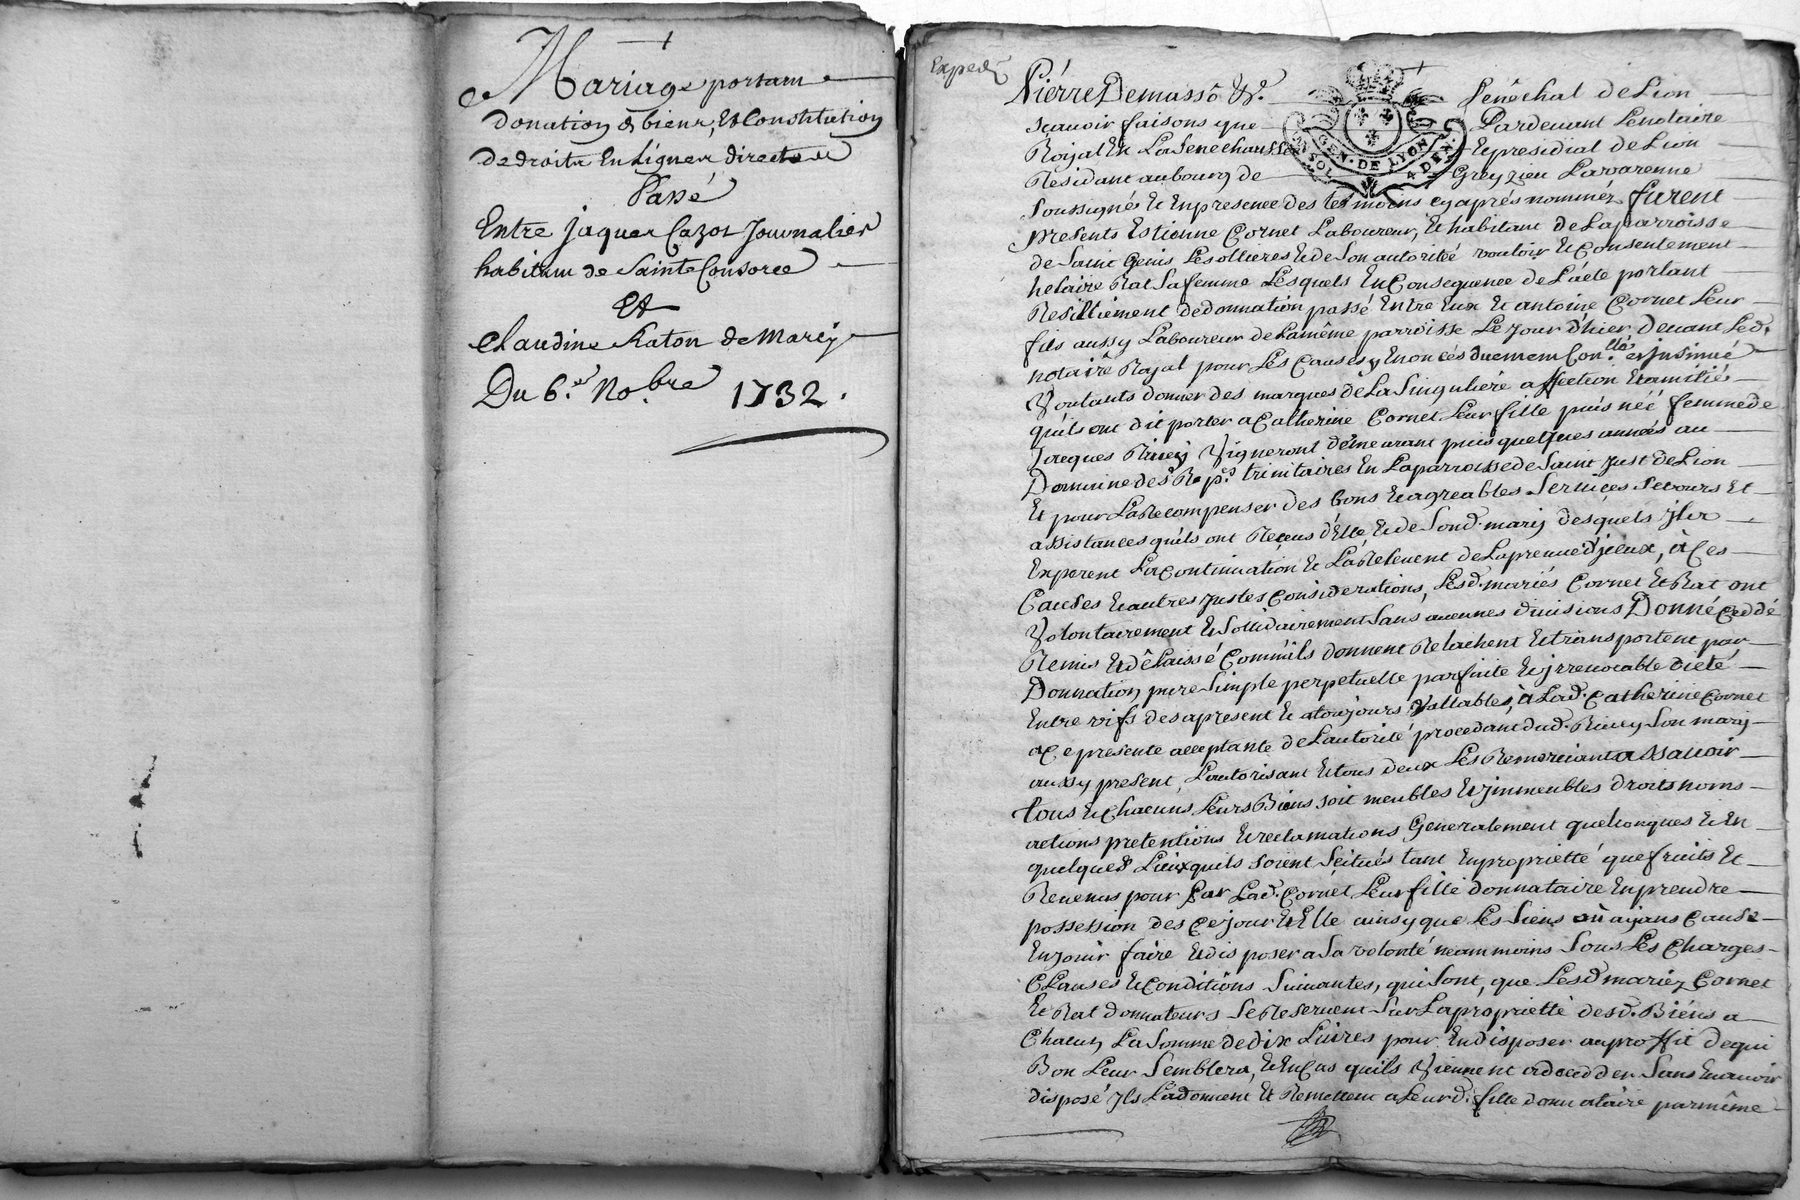 Mariage portant
donation de biens, Et Constitution
de droits En Lignes directes
Passé
Entre jaques Cazot Journalier
habitant de Sainte Consorce
Et
Claudine Raton de Marcy
Du 6.e No.bre 1732.
Expedié
Pierre Demasso &c. Senêchal de Lion
scavoir faisons que Pardevant Le notaire
Roÿal En La Senechaussée Et presidial de Lion
Residant au bourg de Greyzieu Lavarenne
Soussigné Et En presence des témoins cy aprés nommés furent
presents Estienne Cornet Laboureur, Et habitant de La parroisse
de Saint Genis Les ollieres Et de Son autoritéé vouloir Et Consentement
helaire Rat Sa femme Lesquels En Consequence de L'acte portant
Resilliement de donnation passé Entre Eux Et antoine Cornet Leur
fils aussy Laboureur de La même parroisse Le Jour d'hier Devant Led.
notaire Royal pour Les Causes y Enoncés duement Con.llé et jnsinué
Voulants donner des marques de La Singuliére affection Et amitié
quils ont dit porter a Catherine Cornet Leur fille puis néé femme de
Jacques Vigneront demeurant puis quelques années au
Domaine des R. p.s trinitaires En La parroisse de Saint Just de Lion
Et pour La Recompenser des bons Et agreables Services Secours Et
assistances quils ont Recus d'Elle Et de Sond. mary desquels jls
Esperent La Continuation Et La Relevent de La preuve d'jceux, à Ces
Causes Et autres Justes Considerations, Lesd. mariés Cornet Et Rat ont
Volontairement Et Sollidairement Sans aucunes divisions Donné Ceddé
Remis Et déLaissé Comm'ils donnent Relachent Et transportent par
Donnation pure Simple perpetuelle parfaite Et jrrevocable dicte
Entre vifs des apresent Et atoujours Vallables, à Lad. Catherine Cornet
a Ce presente acceptante de L'autorité procedant dud. Son mary
aussy present, L'autorisant Et tous deux Les Remerciant a Savoir
tous Et Chacuns Leurs Biens soit meubles Et jmmeubles droits noms
actions pretentions Et reclamations Generalement quelconques Et En
quelques Lieux quils soient Scitués tant En proprietté que fruits Et
Revenus pour Par Lad. Cornet Leur fille donnataire En prendre
possession des Ce jour Et Elle ainsy que Les Siens où ayans Cause
En jouir faire Et dis poser a Sa volonté neammoins Sous Les Charges
Clauses Et Conditions Suivantes, qui Sont, que Lesd. mariez Cornet
Et Rat donnateurs Se Reservent Sur La proprietté desd. Biens a
Chacun La Somme de dix Livres pour En disposer au proffit de qui
Bon Leur Semblera, Et En Cas quils Viennent a deceder Sans En avoir
disposé jls La donnent Et Remettent a Leurd. fille donnataire par même
GEN. DE LYON